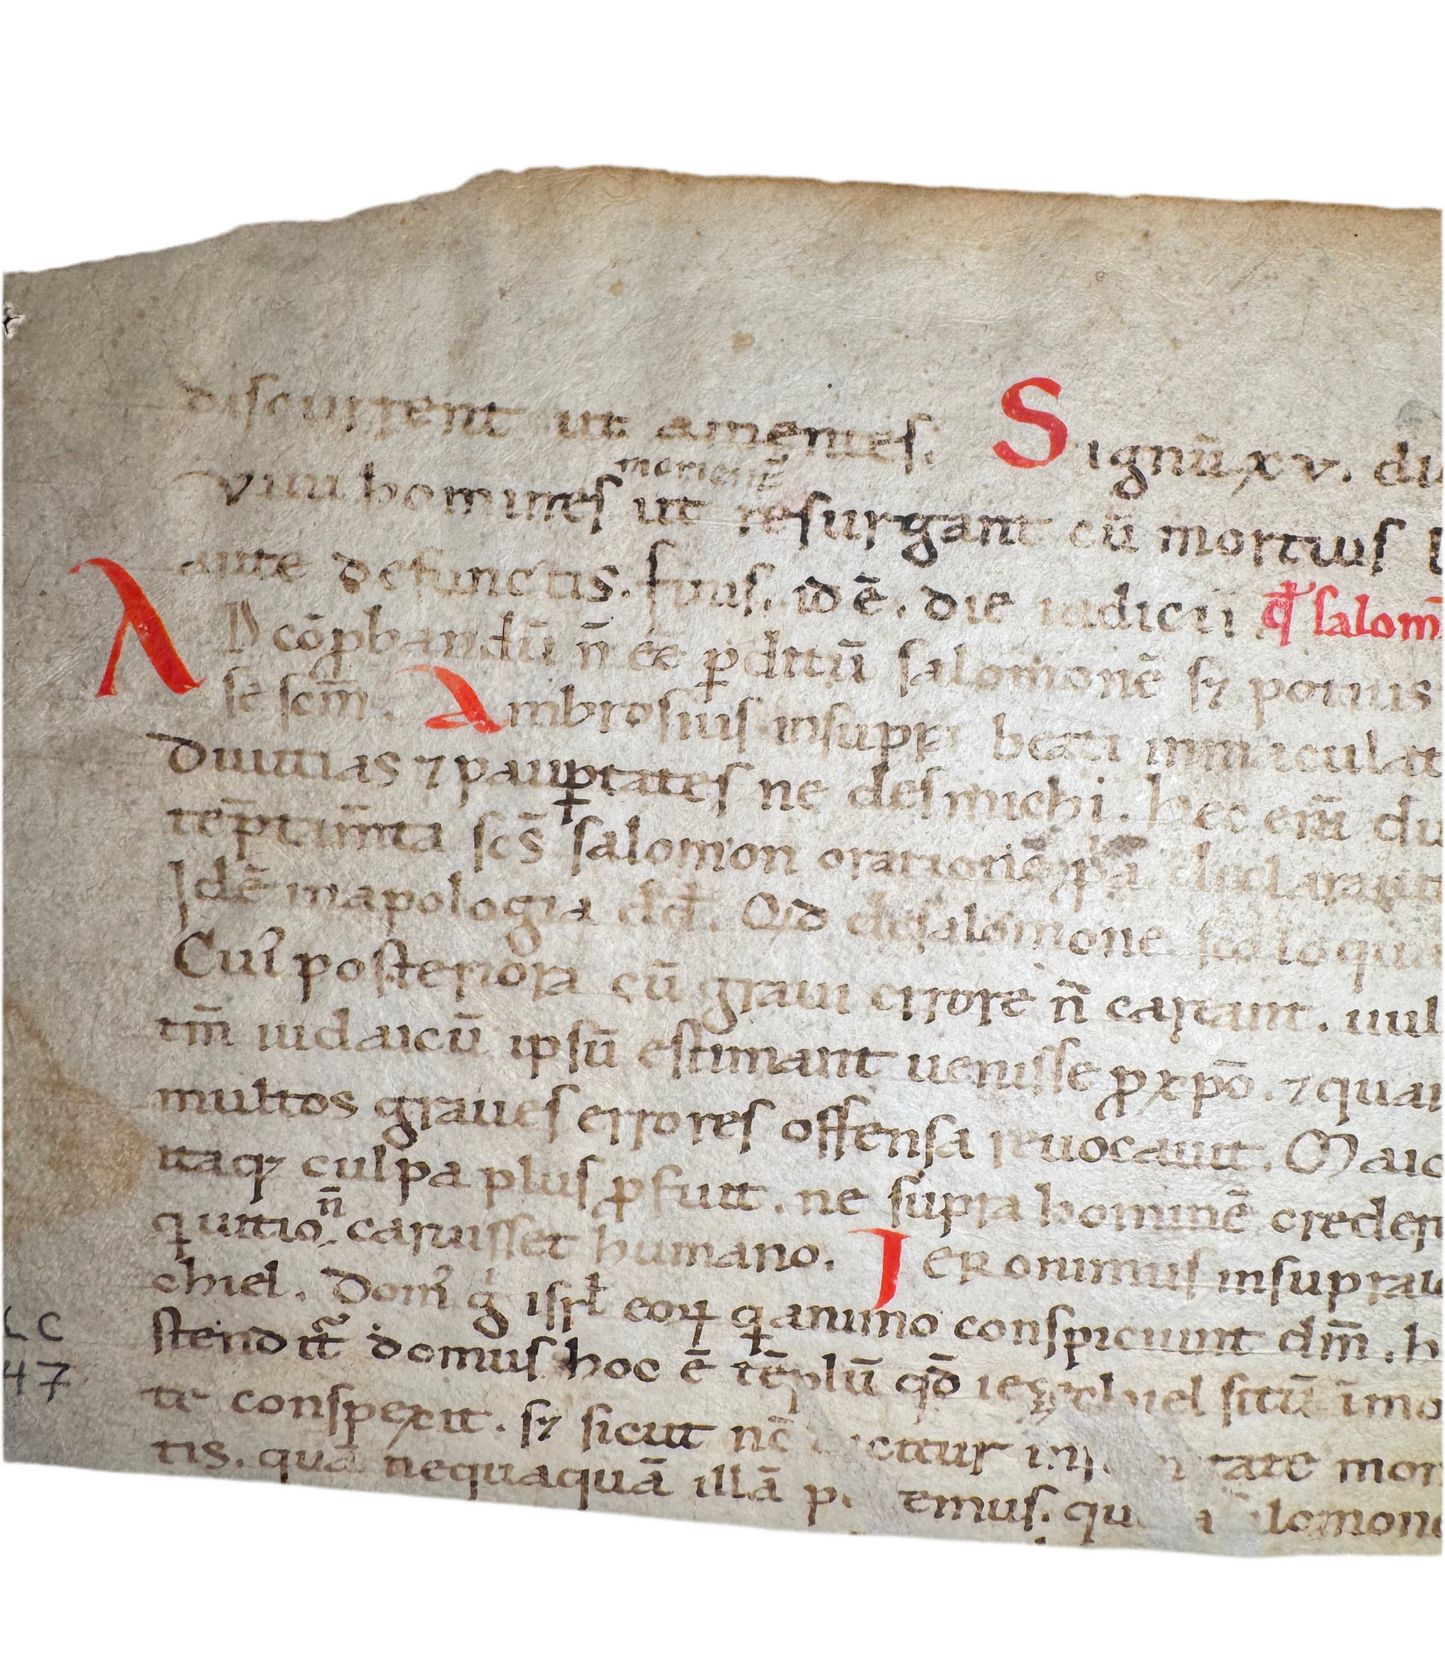 discurrent ut amentes. Signū xv. du
Viui homines ut resurgant cū mortuis l
morient̄
ante defunctis. finis. id ē. die iudicii. qđ salom̄
AD cōp̱bandū n̄ eē p̱ditū salomonē sꝫ potius
sē sc̄m. Ambrosius insup̱ beati immaculat
diuitias ⁊ paup̱tates ne des michi. hec eni̅ du
tēp̄tam̄ta sc̄s salomon oration
Idē inapologia dađ. Qđ desalomone sc̄o loqua
Cui᷒ posteriora cū graui errore n̄ careant. uul
tm̄ iudaicū ipsū estimant uenisse ꝓ xp̄o. ⁊ quam
multos graues errores offensa reuocauit. Maio
itaqꝫ culpa plus ꝓfuit. ne supra hominē creder
n̄
quitio caruisset humano. Jeronimus insuprai
chiel. Dom᷒ g̍ isrł eoꝝ q̱ animo conspiciunt dm̄. h
stendit̄ domus hoc ē tēplū qđ iezechiel sitū īmo
te conspexit. sꝫ sicut nc̄ dicitur in tate mon
tis. quā nequaquā illā emus. lomone
LC
47